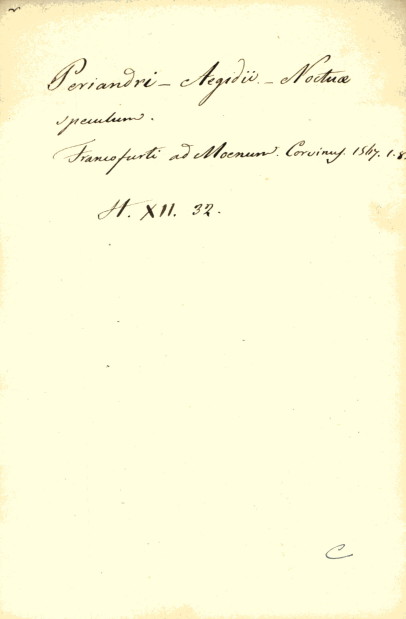 Periandri - Aegidii. - Noctuæ
speculum.
Francofurti ad Moenum. Corvinus. 1567. 1. 8.
H. XII. 32.
C